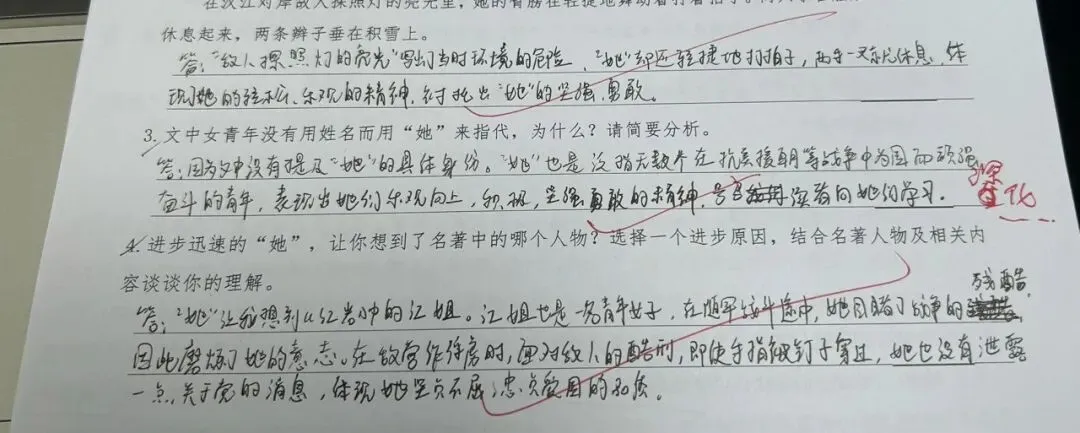 在汉江对岸敌人探照灯的亮光里，她的臂膀在轻捷地舞动着打着拍子
休息起来，两条辫子垂在积雪上。
答："敌人探照灯的亮光"写出当时环境的危险，"她"却还轻捷地打拍子，两手一叉就休息，体
现她的轻松、乐观的精神，衬托出"她"的坚强、勇敢。
3. 文中女青年没有用姓名而用“她”来指代，为什么？请简要分析。
答：因为文中没有提及"她"的具体身份。"她"也是泛指无数个在抗美援朝等战争中为国而顽强
奋斗的青年，表现出她们乐观向上，积极，坚强勇敢的精神，号召读者向她们学习。
深化
4. 进步迅速的“她”，让你想到了名著中的哪个人物？选择一个进步原因，结合名著人物及相关内
容谈谈你的理解。
答："她"让我想到《红岩》中的江姐。江姐也是一名青年女子，在随军战斗途中，她目睹了战争的残酷，
因此磨炼了她的意志。在敌营作俘虏时，面对敌人的酷刑，即使手指被钉子穿过，她也没有泄露
一点关于党的消息，体现她坚贞不屈，忠贞爱国的